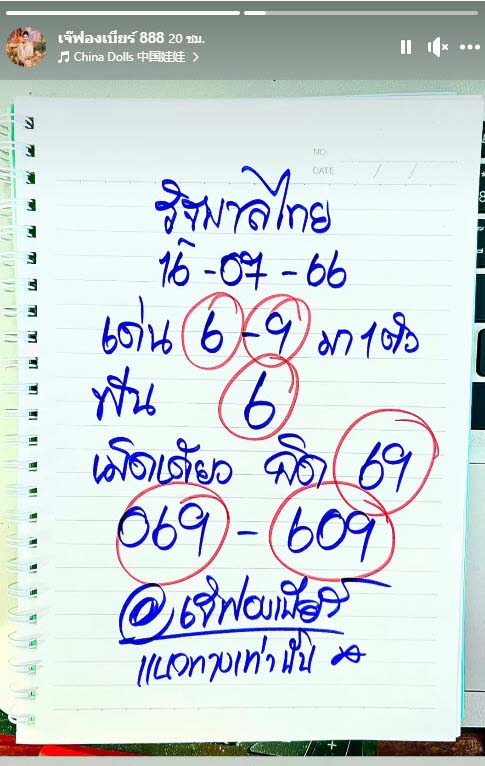 เจ๊ฟองเบียร์ 888 20 ชม.
China Dolls 中国娃娃 >
NO.
DATE / /
รัฐบาลไทย
16 - 07 - 66
เด่น 6 - 9 มา 1 ตัว
ฟัน 6
เม็ดเดียว ฮิต 69
069 - 609
@เจ๊ฟองเบียร์
แนวทางเท่านั้น